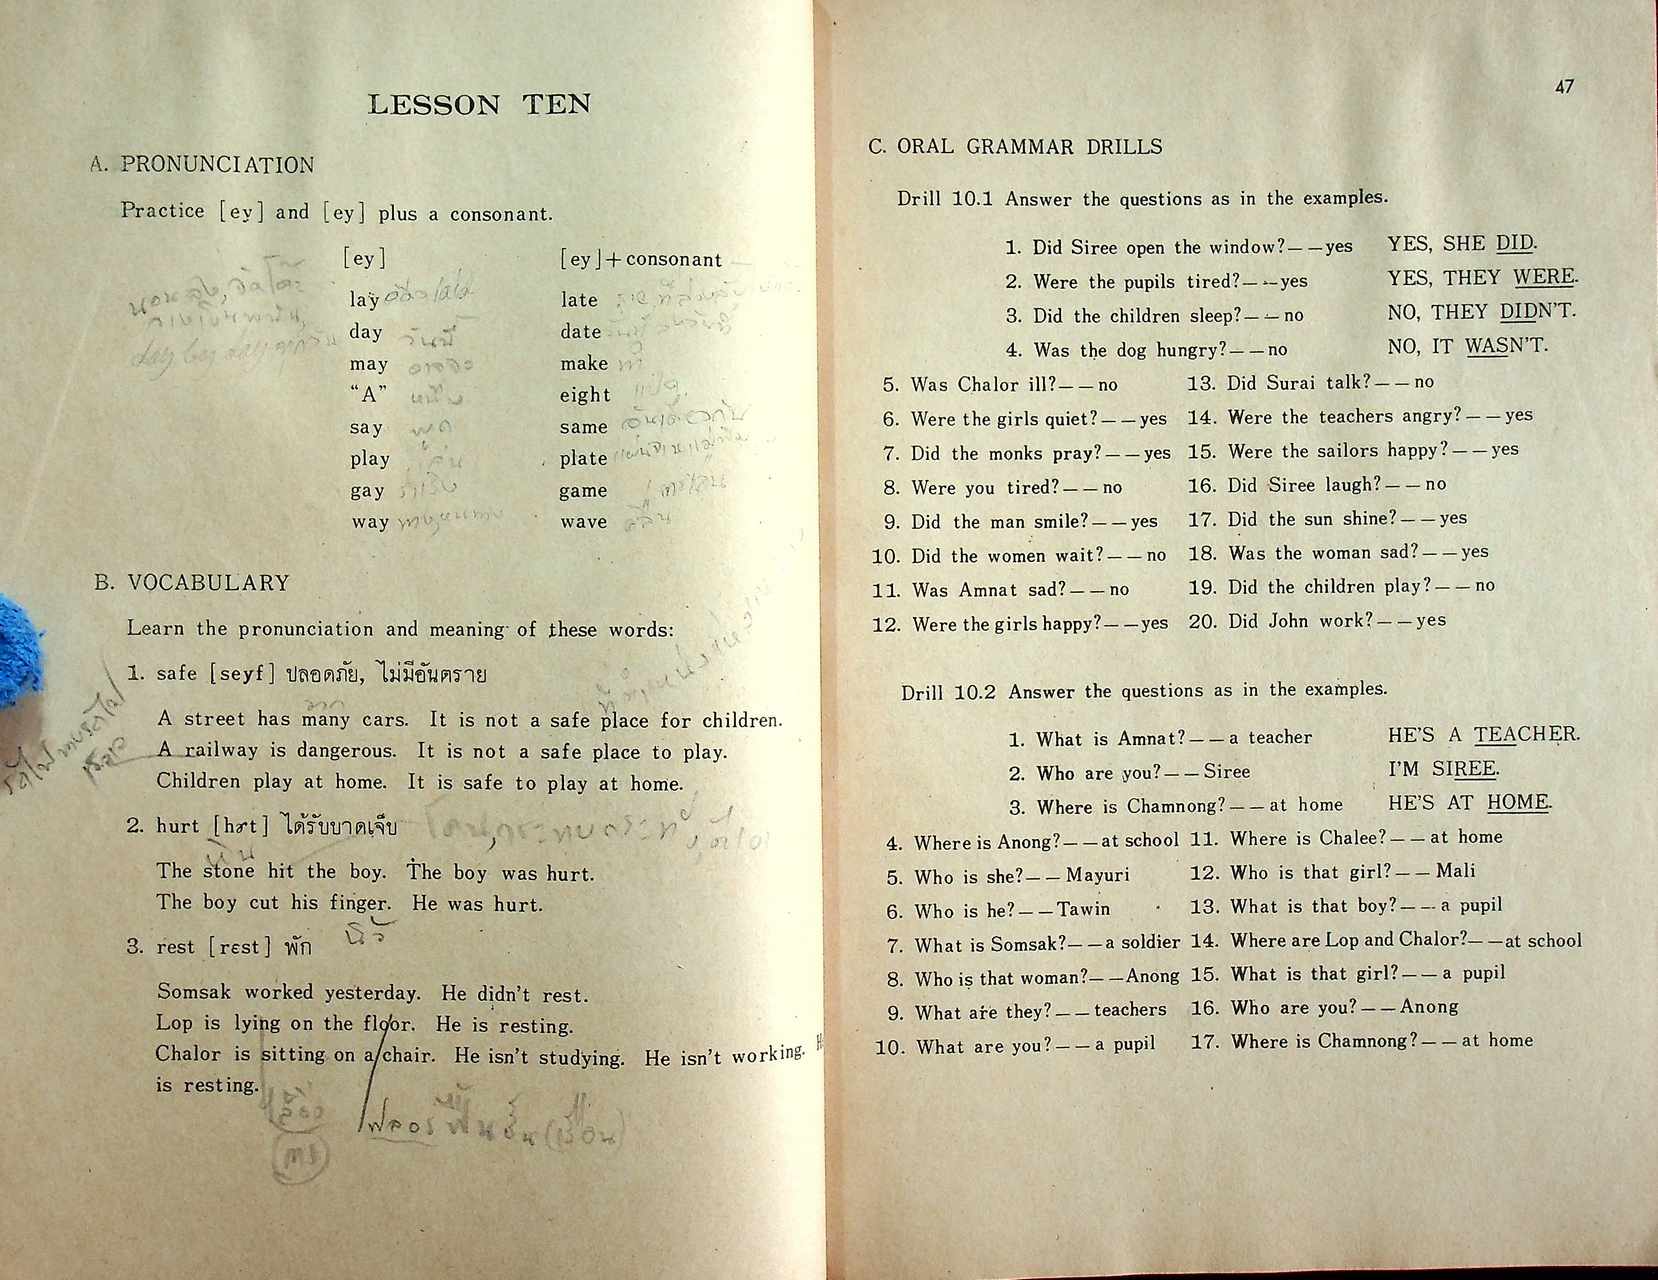 LESSON TEN
A. PRONUNCIATION
Practice [ey] and [ey] plus a consonant.
[ey] [ey]+consonant
lay late
day วันนี้ date
may make ทำ
"A" eight แปด
say พูด same
play เล่น plate
gay game
way wave คลื่น
B. VOCABULARY
Learn the pronunciation and meaning of these words:
1. safe [seyf] ปลอดภัย, ไม่มีอันตราย
มาก
A street has many cars. It is not a safe place for children.
A railway is dangerous. It is not a safe place to play.
Children play at home. It is safe to play at home.
2. hurt [hɚt] ได้รับบาดเจ็บ
หิน
The stone hit the boy. The boy was hurt.
The boy cut his finger. He was hurt.
นิ้ว
3. rest [rɛst] พัก
Somsak worked yesterday. He didn't rest.
Lop is lying on the floor. He is resting.
Chalor is sitting on a chair. He isn't studying. He isn't working. He
is resting.
ฟลอร์ พื้น
47
C. ORAL GRAMMAR DRILLS
Drill 10.1 Answer the questions as in the examples.
1. Did Siree open the window?——yes YES, SHE DID.
2. Were the pupils tired?——yes YES, THEY WERE.
3. Did the children sleep?——no NO, THEY DIDN'T.
4. Was the dog hungry?——no NO, IT WASN'T.
5. Was Chalor ill?——no 13. Did Surai talk?——no
6. Were the girls quiet?——yes 14. Were the teachers angry?——yes
7. Did the monks pray?——yes 15. Were the sailors happy?——yes
8. Were you tired?——no 16. Did Siree laugh?——no
9. Did the man smile?——yes 17. Did the sun shine?——yes
10. Did the women wait?——no 18. Was the woman sad?——yes
11. Was Amnat sad?——no 19. Did the children play?——no
12. Were the girls happy?——yes 20. Did John work?——yes
Drill 10.2 Answer the questions as in the examples.
1. What is Amnat?——a teacher HE'S A TEACHER.
2. Who are you?——Siree I'M SIREE.
3. Where is Chamnong?——at home HE'S AT HOME.
4. Where is Anong?——at school 11. Where is Chalee?——at home
5. Who is she?——Mayuri 12. Who is that girl?——Mali
6. Who is he?——Tawin 13. What is that boy?——a pupil
7. What is Somsak?——a soldier 14. Where are Lop and Chalor?——at school
8. Who is that woman?——Anong 15. What is that girl?——a pupil
9. What are they?——teachers 16. Who are you?——Anong
10. What are you?——a pupil 17. Where is Chamnong?——at home